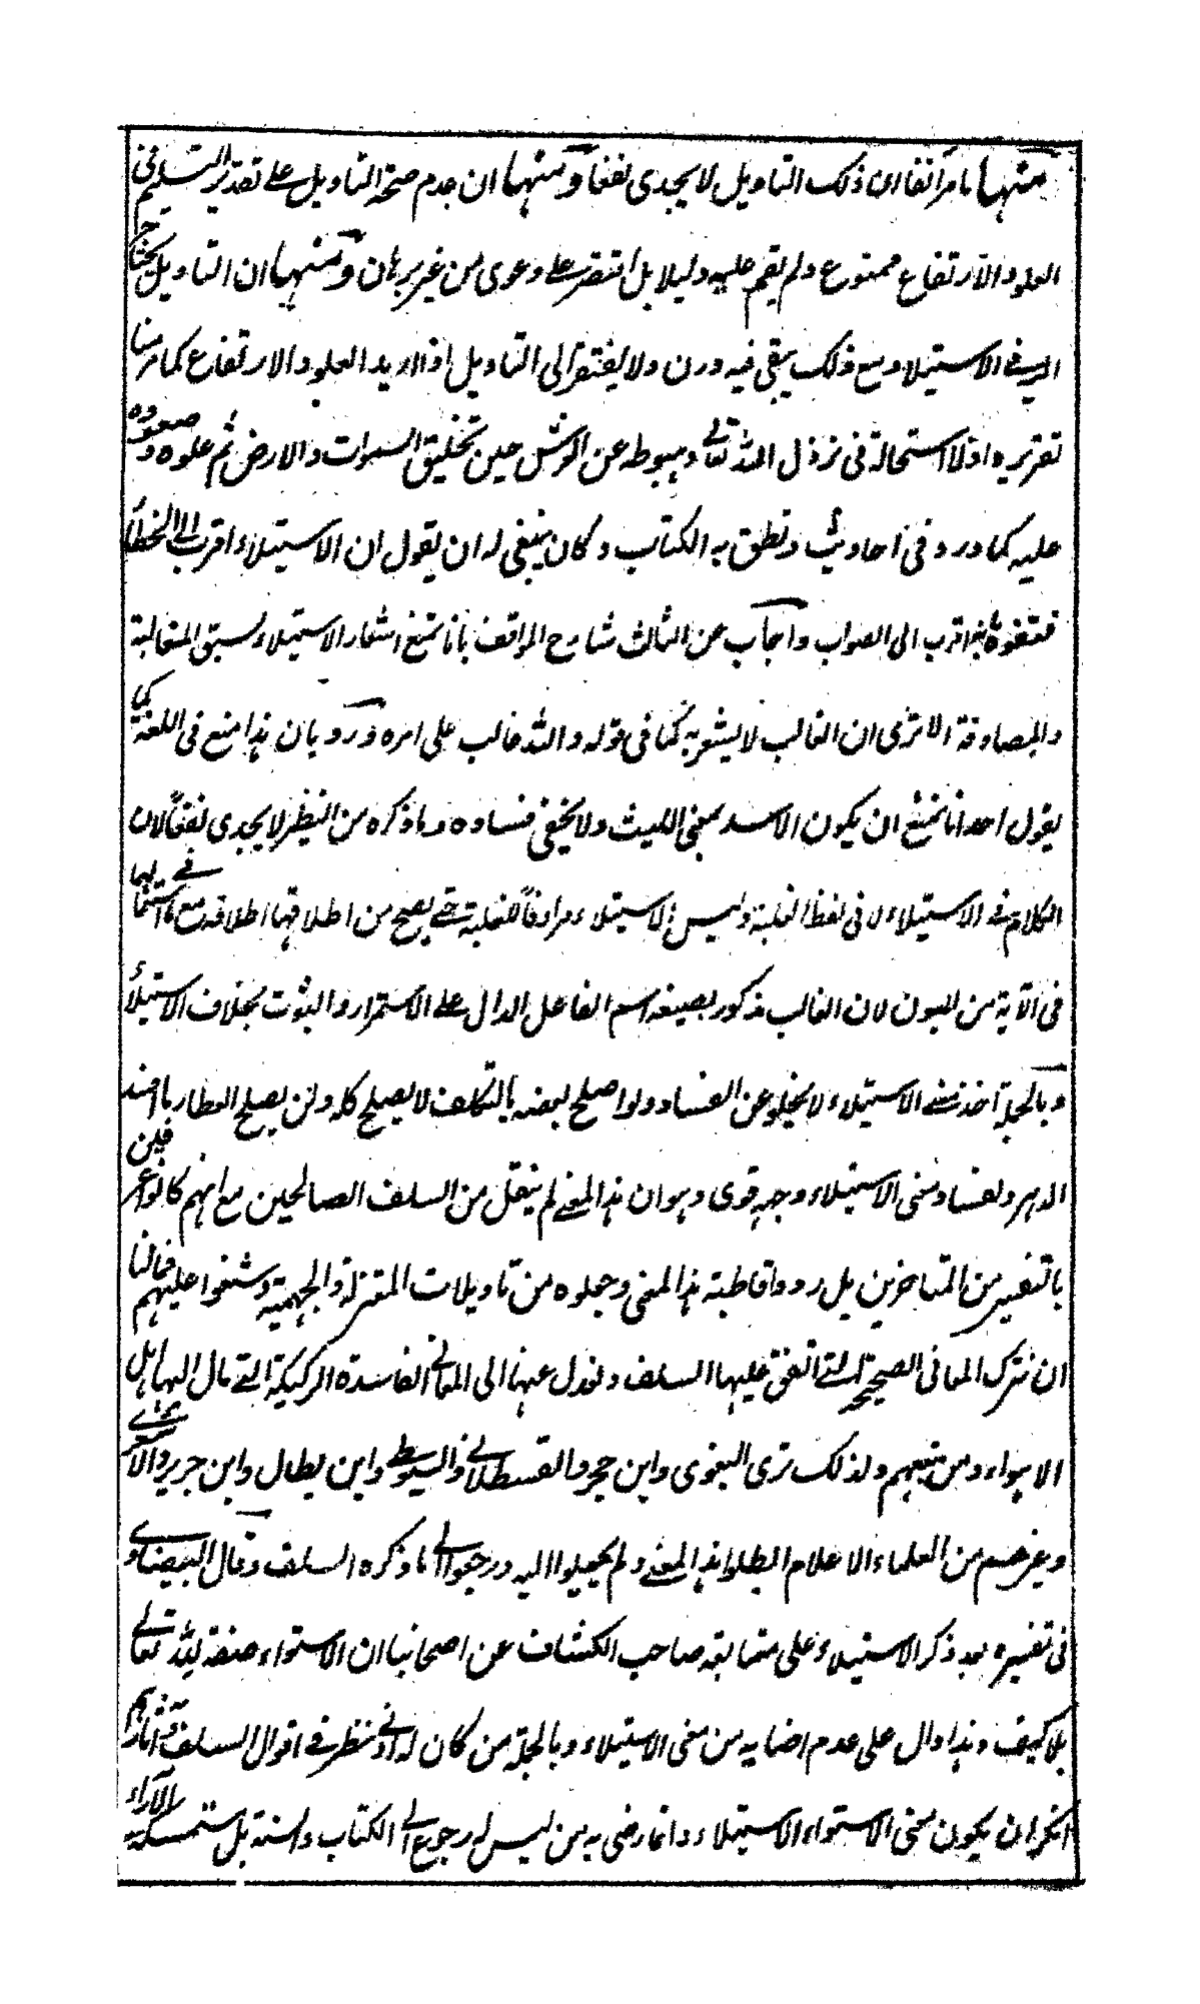 منها ما مر آنفا ان ذلك التاويل لا يجدى نفعا ومنها ان عدم صحة التاويل على تقدير التسليم فى
العلو والارتفاع ممنوع ولم يقم عليه دليلا بل اقتصر على دعوى من غير برهان ومنها ان التاويل يحتاج
اليه فى الاستيلاء ومع ذلك يبقى فيه درن ولا يفتقر الى التاويل اذا اريد العلو والارتفاع كما مر منا
تقريره اذ لا استحالة فى نزول الله تعالى وهبوطه عن العرش حين تخليق السموات والارض ثم علوه وصعوده
عليه كما ورد فى احاديث ونطق به الكتاب وكان ينبغى له ان يقول ان الاستيلاء اقرب الى الخطأ
فتفوه بانه اقرب الى الصواب واجاب عن الثالث شارح المواقف بانا نمنع اشعار الاستيلاء بسبق المغالبة
والمصادفة الا ترى ان الغالب لا يشعر به كما فى قوله والله غالب على امره ورد بان هذا منع فى اللغة كما
يقول احد انا نمنع ان يكون الاسد بمعنى الليث ولا يخفى فساده وما ذكره من النظير لا يجدى نفعا لان
الكلام فى الاستيلاء لا فى لفظ الغلبة وليس الاستيلاء مرادفا للغلبة حتى يصح من اطلاقها اطلاقه مع ما بينهما
فى الآية من البون لان الغالب مذكور بصيغة اسم الفاعل الدال على الاستمرار والثبوت بخلاف الاستيلاء
وبالجملة اخذ معنى الاستيلاء لا يخلو عن الفساد ولو اصلح بعضه بالتكلف لا يصلح كله ولن يصلح العطار ما افسد
الدهر ولفساد معنى الاستيلاء وجه قوى وهو ان هذا المعنى لم ينقل من السلف الصالحين مع انهم كانوا عارفين
بالتفسير من المتاخرين بل ردوا قاطبة هذا المعنى وجعلوه من تاويلات المعتزلة والجهمية وشنعوا عليهم فمالنا
ان نترك المعانى الصحيحة التى اتفق عليها السلف ونعدل عنها الى المعانى الفاسدة الركيكة التى مال اليها اهل
الاهواء ومن تبعهم ولذلك ترى البغوى وابن حجر والقسطلانى والسيوطى وابن بطال وابن جرير والآجرى
وغيرهم من العلماء الاعلام ابطلوا هذا المعنى ولم يميلوا اليه ورجعوا الى ما ذكره السلف وقال البيضاوى
فى تفسيره بعد ذكر الاستيلاء على متابعة صاحب الكشاف عن اصحابنا ان الاستواء صفة لله تعالى
بلا كيف وهذا دال على عدم رضايه من معنى الاستيلاء وبالجملة من كان له ادنى نظر فى اقوال السلف وآثارهم
انكر ان يكون معنى الاستواء الاستيلاء وانما رضى به من ليس له رجوع الى الكتاب والسنة بل متمسكه الآراء